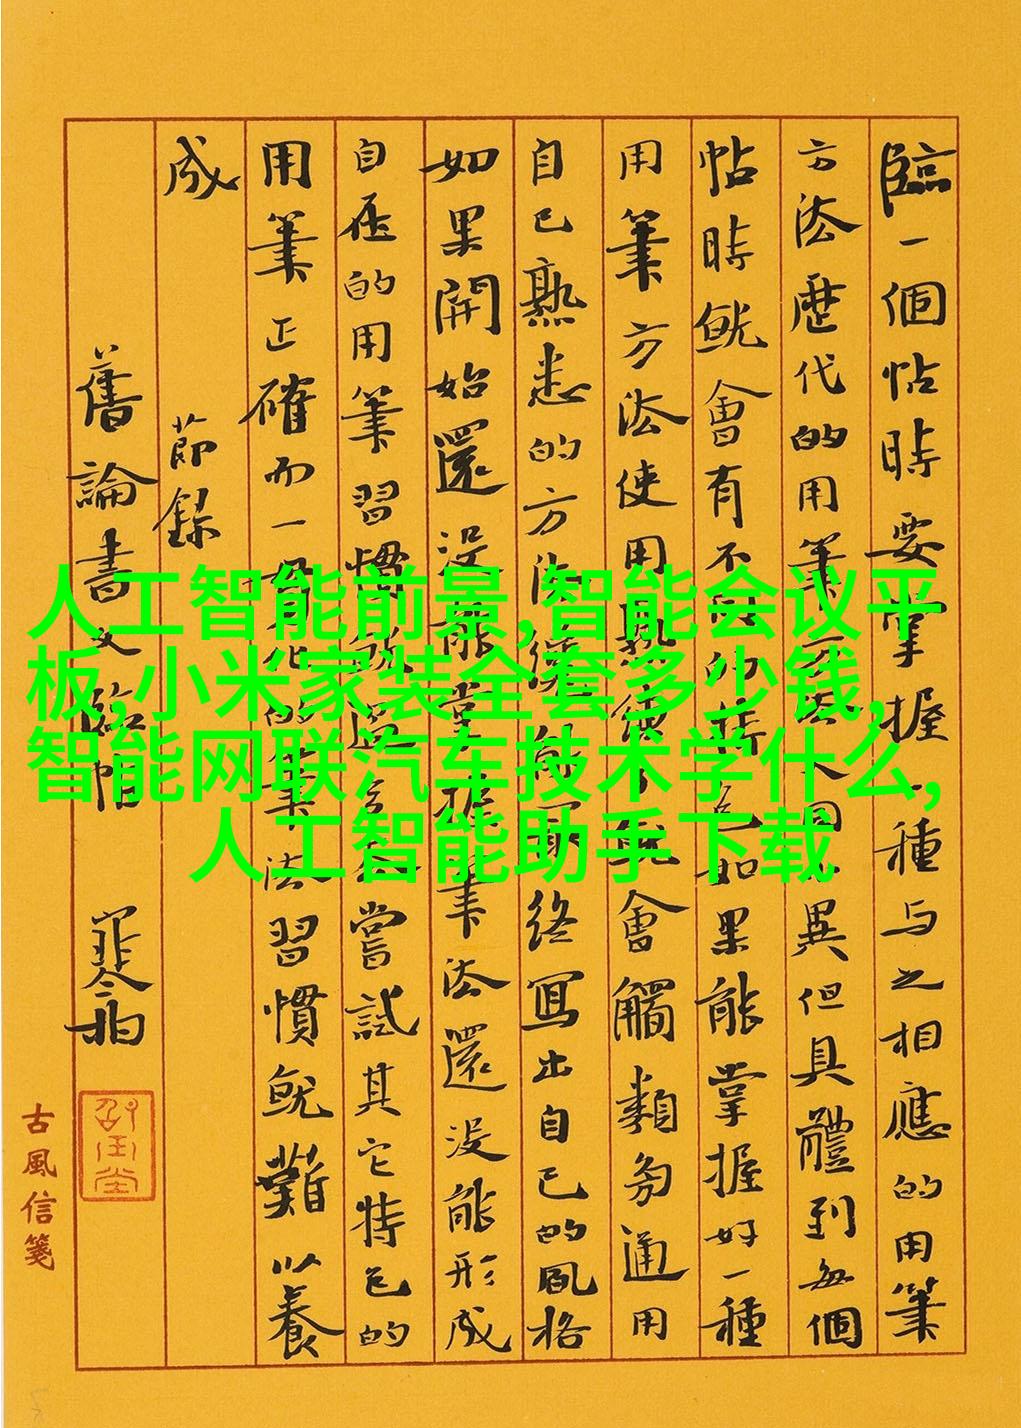 臨一個帖時要掌握一種与之相應的用筆
方法歷代的用筆方法大同小異但具體到每個
帖時就會有不同的特色如果能掌握好一種
用筆方法使用熟就會觸類旁通用
自己熟悉的方法終寫出自己的風格
如果開始還沒能掌握筆法還沒能形成
自在的用筆習慣嘗試其它特色的
用筆正確而一的筆法習慣就難以養
成 節錄
舊論書文臨帖
古風信箋
人工智能前景,智能会议平
板,小米家装全套多少钱,
智能网联汽车技术学什么,
人工智能助手下载